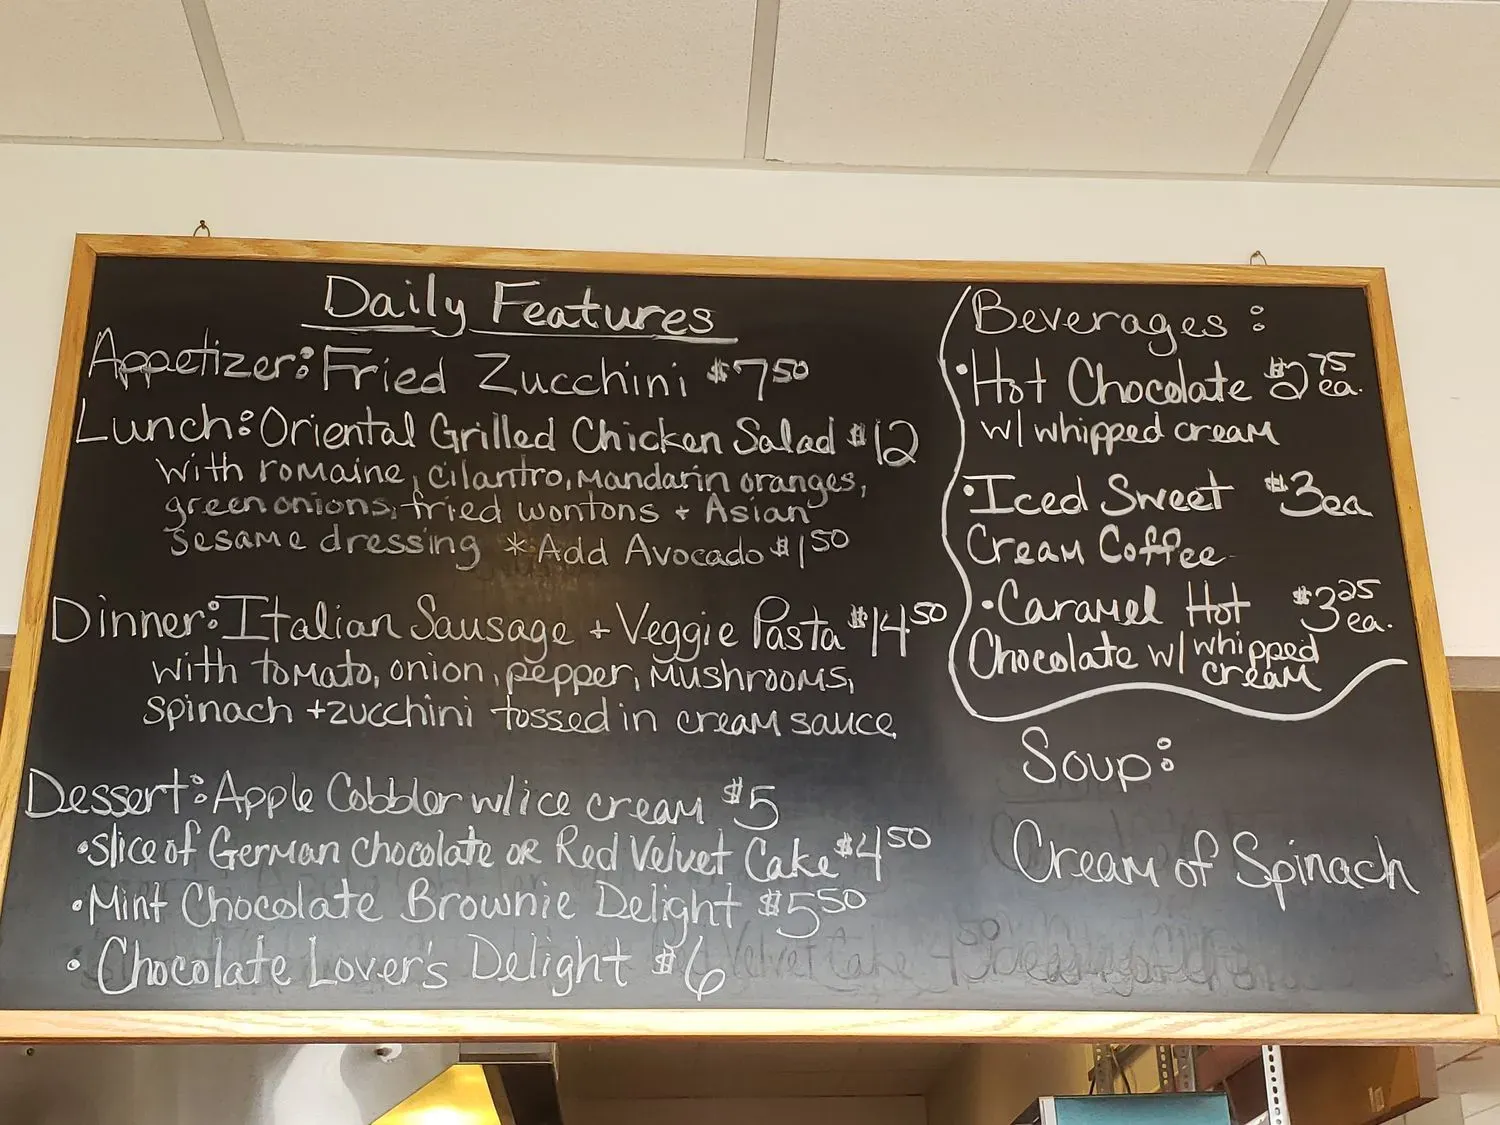 Daily Features
Appetizer: Fried Zucchini $7 50
Lunch: Oriental Grilled Chicken Salad $12
with romaine, cilantro, mandarin oranges,
green onions, fried wontons + Asian
sesame dressing *Add Avocado $1 50
Dinner: Italian Sausage + Veggie Pasta $14 50
with tomato, onion, pepper, mushrooms,
spinach + zucchini tossed in cream sauce
Dessert: Apple Cobbler w/ ice cream $5
• slice of German chocolate or Red Velvet Cake $4 50
• Mint Chocolate Brownie Delight $5 50
• Chocolate Lover's Delight $6
Beverages:
• Hot Chocolate $2 75 ea.
w/ whipped cream
• Iced Sweet $3 ea
Cream Coffee
• Caramel Hot $3 25 ea.
Chocolate w/ whipped
cream
Soup:
Cream of Spinach
Velvet Cake 4 50